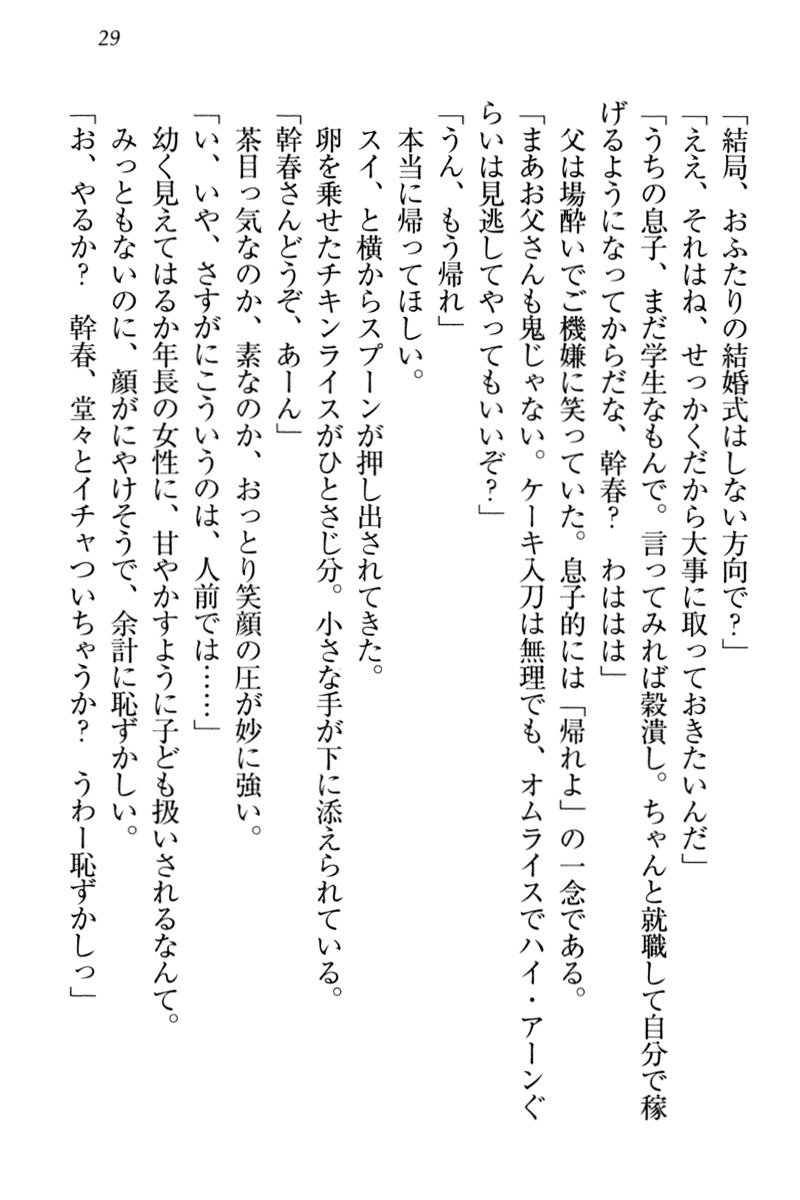 29
「結局、おふたりの結婚式はしない方向で？」
「ええ、それはね、せっかくだから大事に取っておきたいんだ」
「うちの息子、まだ学生なもんで。言ってみれば穀潰し。ちゃんと就職して自分で稼
げるようになってからだな、幹春？　わははは」
父は場酔いでご機嫌に笑っていた。息子的には「帰れよ」の一念である。
「まあお父さんも鬼じゃない。ケーキ入刀は無理でも、オムライスでハイ・アーンぐ
らいは見逃してやってもいいぞ？」
「うん、もう帰れ」
本当に帰ってほしい。
スイ、と横からスプーンが押し出されてきた。
卵を乗せたチキンライスがひとさじ分。小さな手が下に添えられている。
「幹春さんどうぞ、あーん」
茶目っ気なのか、素なのか、おっとり笑顔の圧が妙に強い。
「い、いや、さすがにこういうのは、人前では……」
幼く見えてはるか年長の女性に、甘やかすように子ども扱いされるなんて。
みっともないのに、顔がにやけそうで、余計に恥ずかしい。
「お、やるか？　幹春、堂々とイチャついちゃうか？　うわー恥ずかしっ」